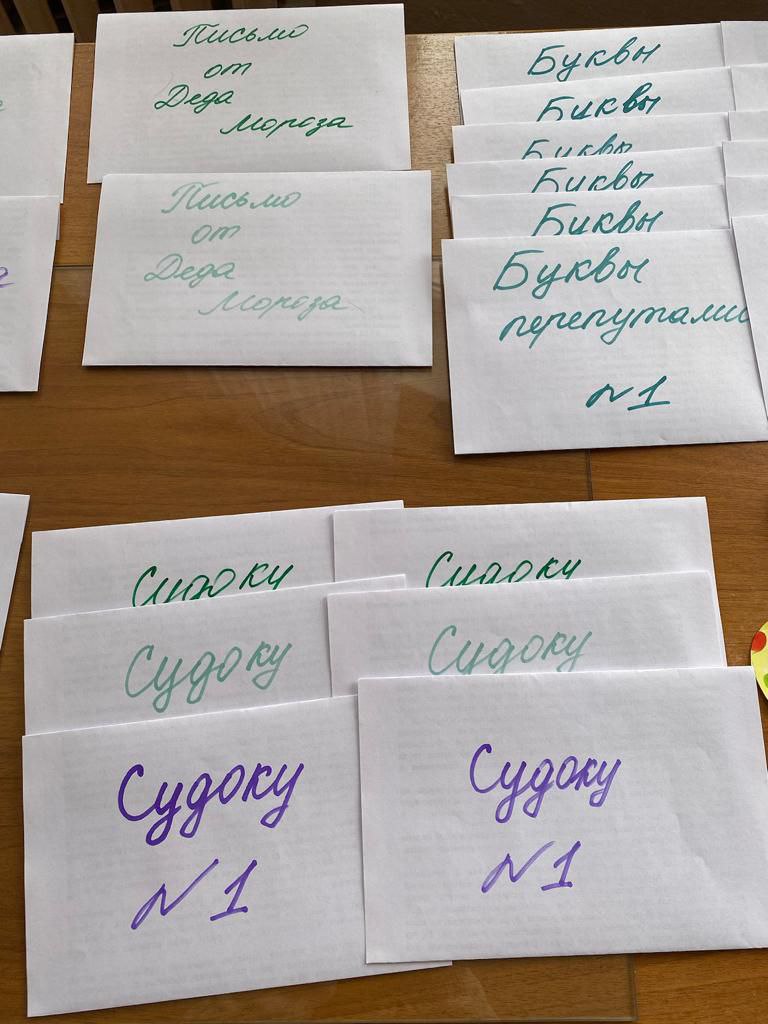 Письмо
от
Деда
Мороза
Письмо
от
Деда
Мороза
Буквы
Буквы
Буквы
Буквы
Буквы
Буквы
перепутали
№1
Судоку
Судоку
Судоку
Судоку
Судоку
№1
Судоку
№1